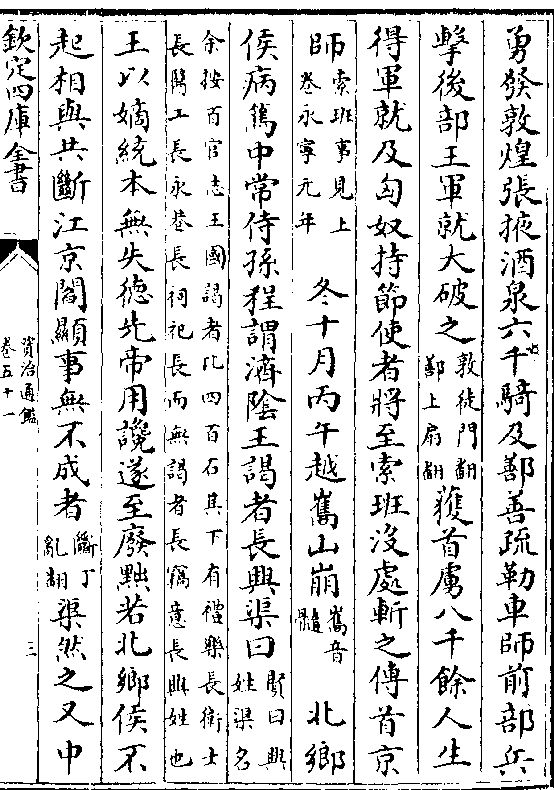 勇發敦煌張掖酒泉六千騎及鄯善疏勒車師前部兵
擊後部王軍就大破之
敦徒門翻
鄯上扇翻
獲首虜八千餘人生
得軍就及匈奴持節使者將至索班沒處斬之傳首京
師
索班事見上
卷永寧元年
冬十月丙午越嶲山崩
嶲音
髓
北鄉
侯病篤中常侍孫程謂濟陰王謁者長興渠曰
賢曰興
姓渠名
余按百官志王國謁者比四百石其下有禮樂長衛士
長醫工長永巷長祠祀長而無謁者長竊意長興姓也
王以嫡統本無失德先帝用讒遂至廢黜若北鄉侯不
起相與共斷江京閻顯事無不成者
斷丁
亂翻
渠然之又中
欽定四庫全書
資治通鑑
卷五十一
三